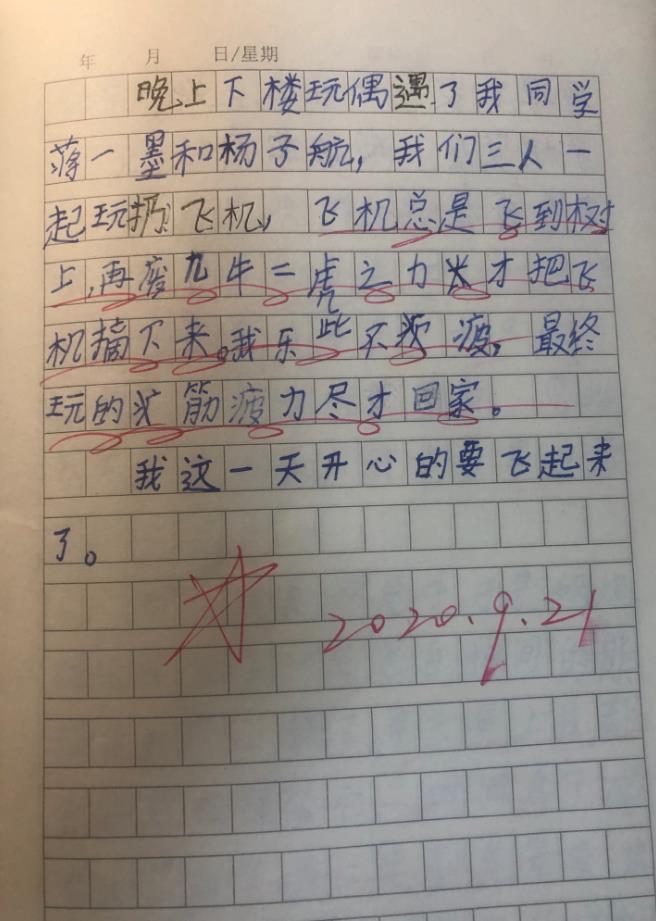 年 月 日/星期
晚上下楼玩偶遇了我同学
蒋一墨和杨子航，我们三人一
起玩扔飞机，飞机总是飞到树
上，再废九牛二虎之力才把飞
机摘下来。我乐此不疲，最终
玩的筋疲力尽才回家。
我这一天开心的要飞起来
了。
2020.9.21